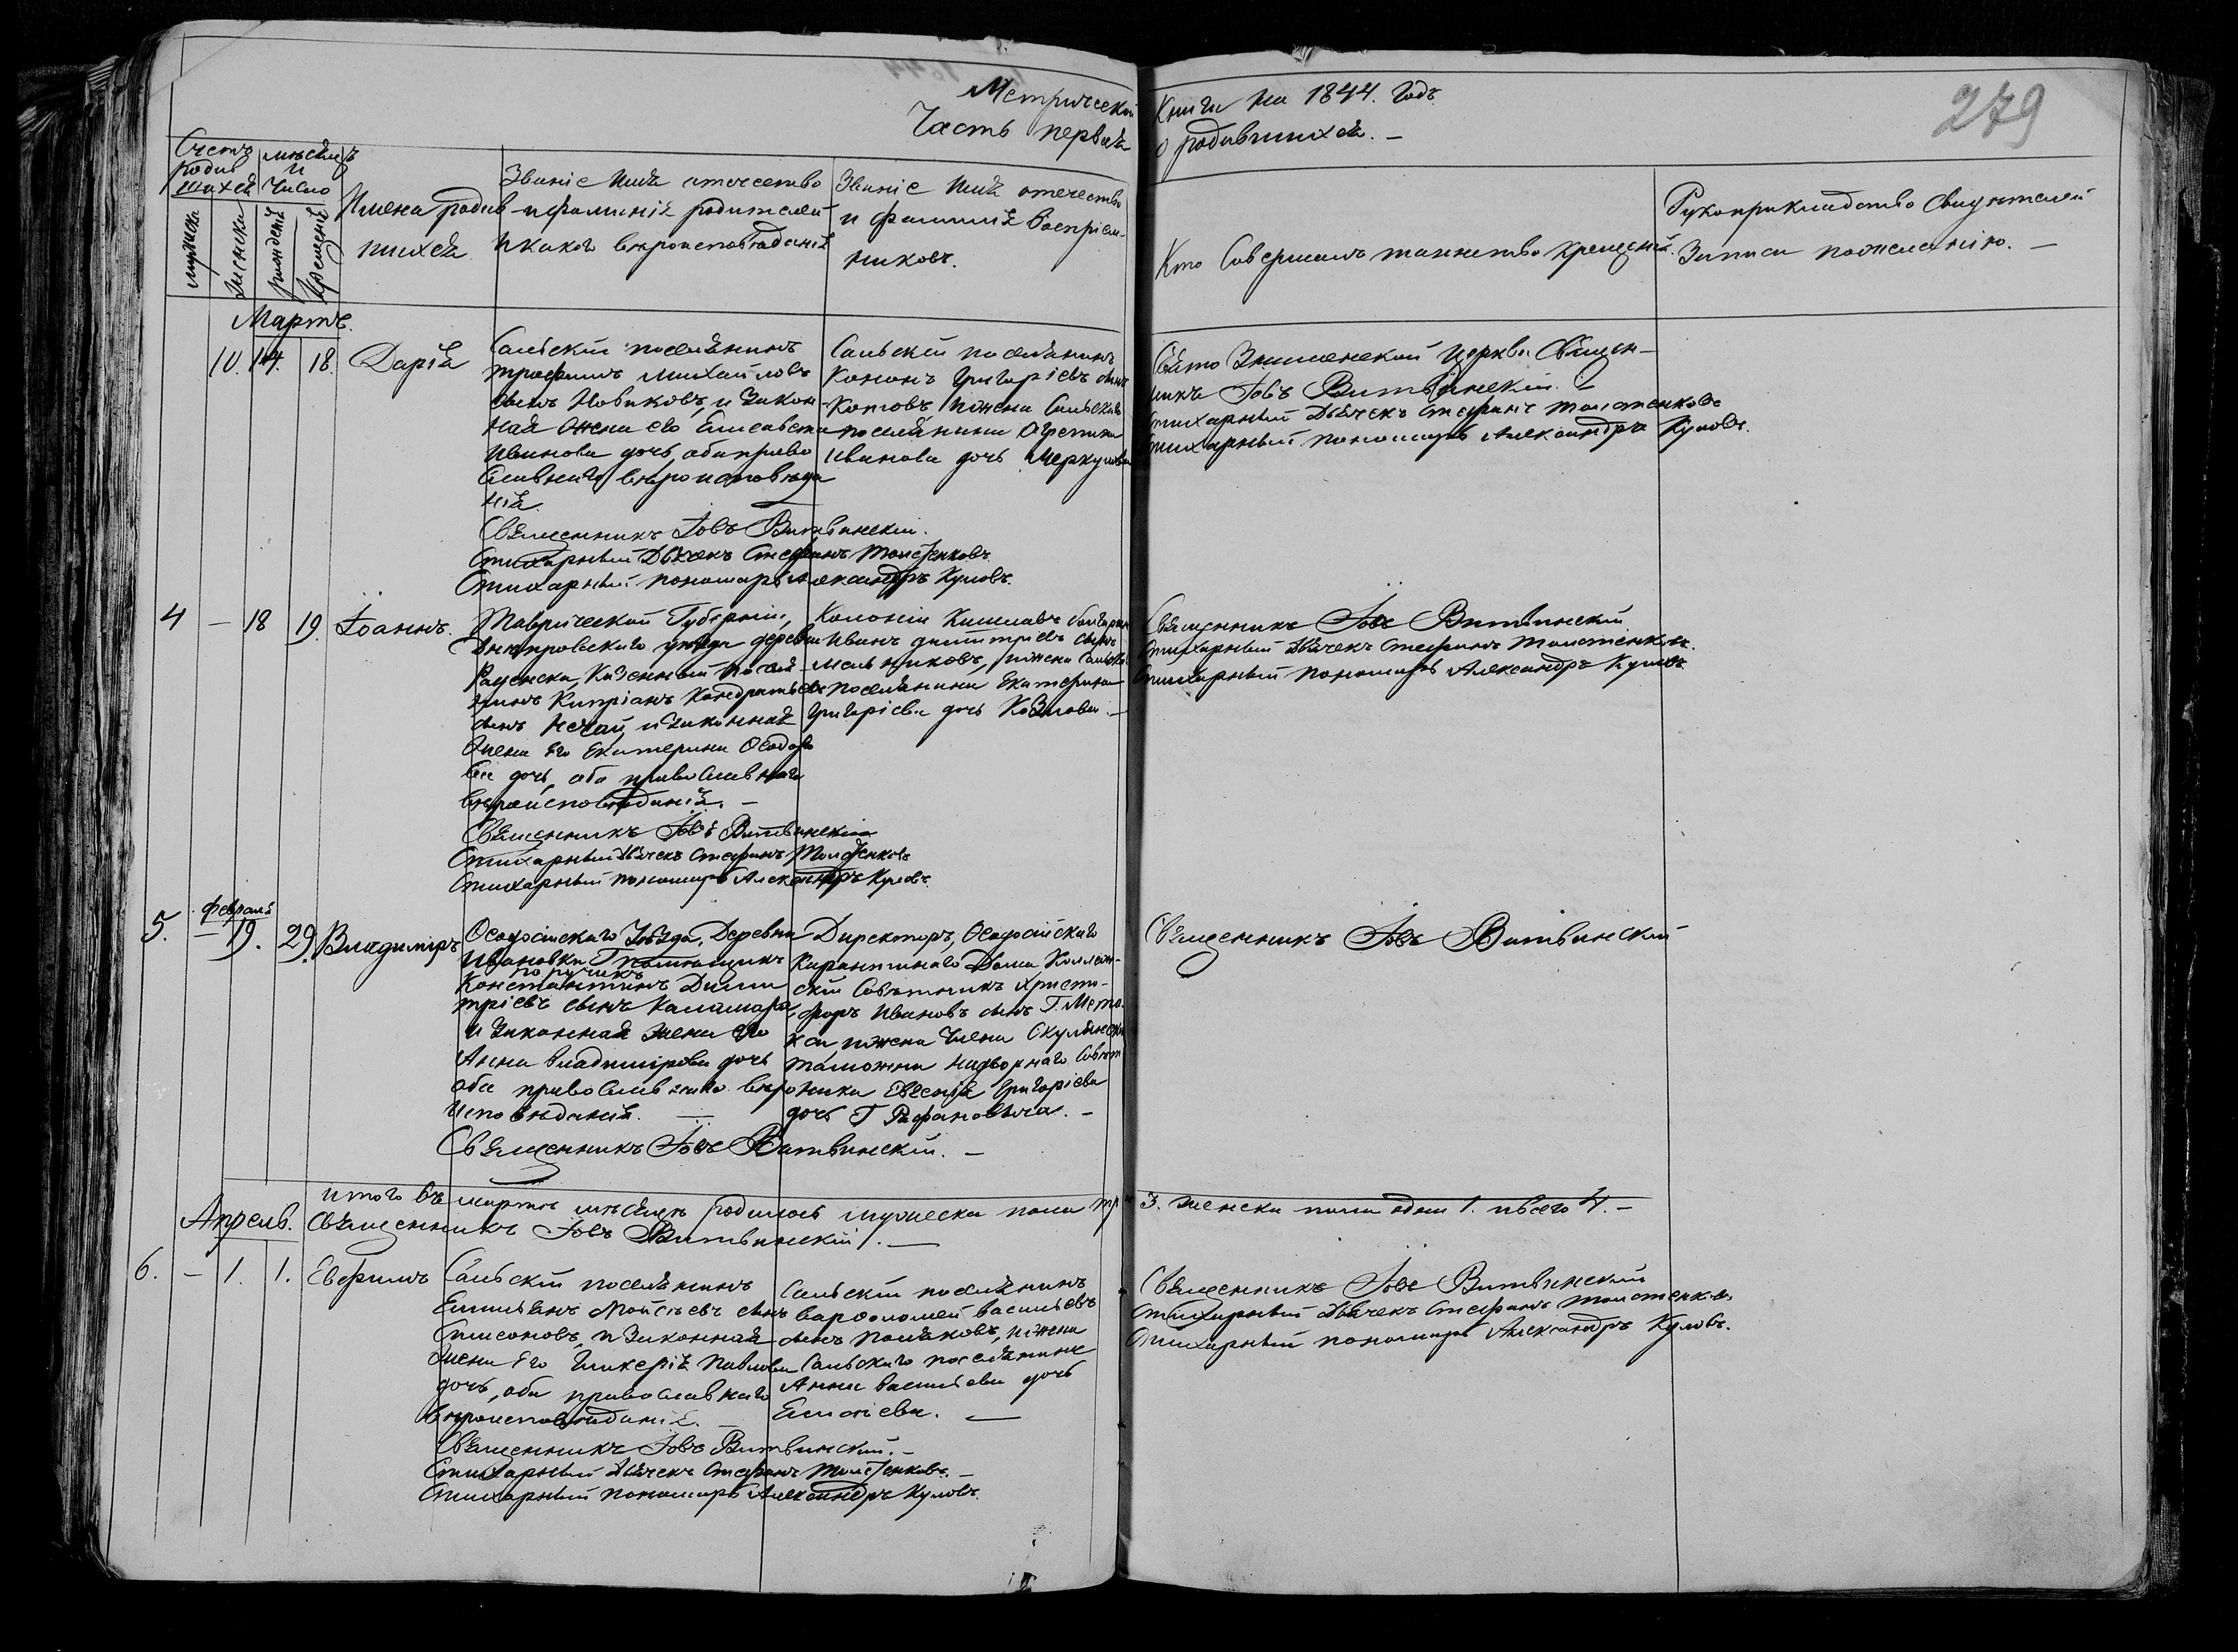 279
Метрической Книги на 1844. Годъ.
Часть первая о родившихся. —
Счетъ родив шихся
мѣсяцъ и число
мужеска
женска
рожденія
крещенія
Имена родив
шихся
Званіе имя отечество
и фамилія родителей
и какого вѣроисповѣданія
Званіе имя отечество
и фамилія воспріем-
никовъ.
Кто совершалъ таинство крещенія.
Рукоприкладство свидѣтелей
записи по желанію. —
Мартъ.
10. 14. 18. Дарія
Сальскій поселянинъ
трофимъ михайловъ
сынъ Новиковъ, и Закон-
ная Жена его Елисавета
Иванова дочь, оба право
славнаго вѣроисповѣда
нія
Священникъ Іовъ Витвинскій.
Стихарный Дьячекъ Стефанъ Толстенковъ
Стихарный пономарь Александръ Куловъ.
Сальскій поселянинъ
Кононъ Григоріевъ сынъ
Котовъ, и жена Сальскаго
поселянина Агрепина
Иванова дочь Меркулова
Свято Знаменской церкви Священ-
никъ Іовъ Витвинскій. —
Стихарный Дьячекъ Стефанъ Толстенковъ
Стихарный пономарь Александръ Куловъ.
4 — 18 19. Іоаннъ.
Таврической Губерніи,
Днѣпровского уѣзда деревни
Казенный посел
янинъ Кипріанъ Кондратьевъ
сынъ Нечай, и законная
Жена Его Екатерина Ѳеодоро
ва дочь, оба православнаго
вѣроисповѣданія. —
Священникъ Іовъ Витвинскій
Стихарный Дьячекъ Стефанъ Толстенковъ
Стихарный пономарь Александръ Куловъ.
Колоніи Кишлавъ болгаринъ
Иванъ дмитріевъ сынъ
мельниковъ, и жена Сальскаго
поселянина Екатерина
Григоріева дочь Козлова. —
Священникъ Іовъ Витвинскій
Стихарный Дьячекъ Стефанъ Толстенковъ.
Стихарный пономарь Александръ Куловъ
Февраля
5. — 19. 29. Владиміръ
Ѳеодосійскаго Уѣзда, Деревни
Ивановки помѣщикъ
поручикъ
Константинъ Дими
тріевъ сынъ Каламара,
и Законная жена Его
Анна Владимірова дочь
оба православнаго вѣро
исповѣданія. —
Священникъ Іовъ Витвинскій. —
Директоръ, Ѳеодосійскаго
Карантиннаго Дома Коллеж-
скій Совѣтникъ Христо-
форъ Ивановъ сынъ Г.
и жена Члена
таможни надворнаго Совѣт
ника Евгенія Григоріева
дочь Г Рафановича. —
Священникъ Іовъ Витвинскій
итого въ мартѣ мѣсяцѣ родилось мужеска пола три 3. женска пола одна 1. и всего 4. —
Священникъ Іовъ Витвинскій. —
Апрель.
6. — 1. 1. Евфимъ
Сальскій поселянинъ
Емильянъ Мойсѣевъ сынъ
и Законная
Жена Его Гликерія Павлова
дочь, оба православнаго
вѣроисповѣданія. —
Священникъ Іовъ Витвинскій. —
Стихарный Дьячекъ Стефанъ Толстенковъ. —
Стихарный пономарь Александръ Куловъ.
Сальскій поселянинъ
варфоломей васильевъ
сынъ поляковъ, и жена
Сальскаго поселянина
Анна васильева дочь
Священникъ Іовъ Витвинскій
Стихарный Дьячекъ Стефанъ Толстенковъ.
Стихарный пономарь Александръ Куловъ.